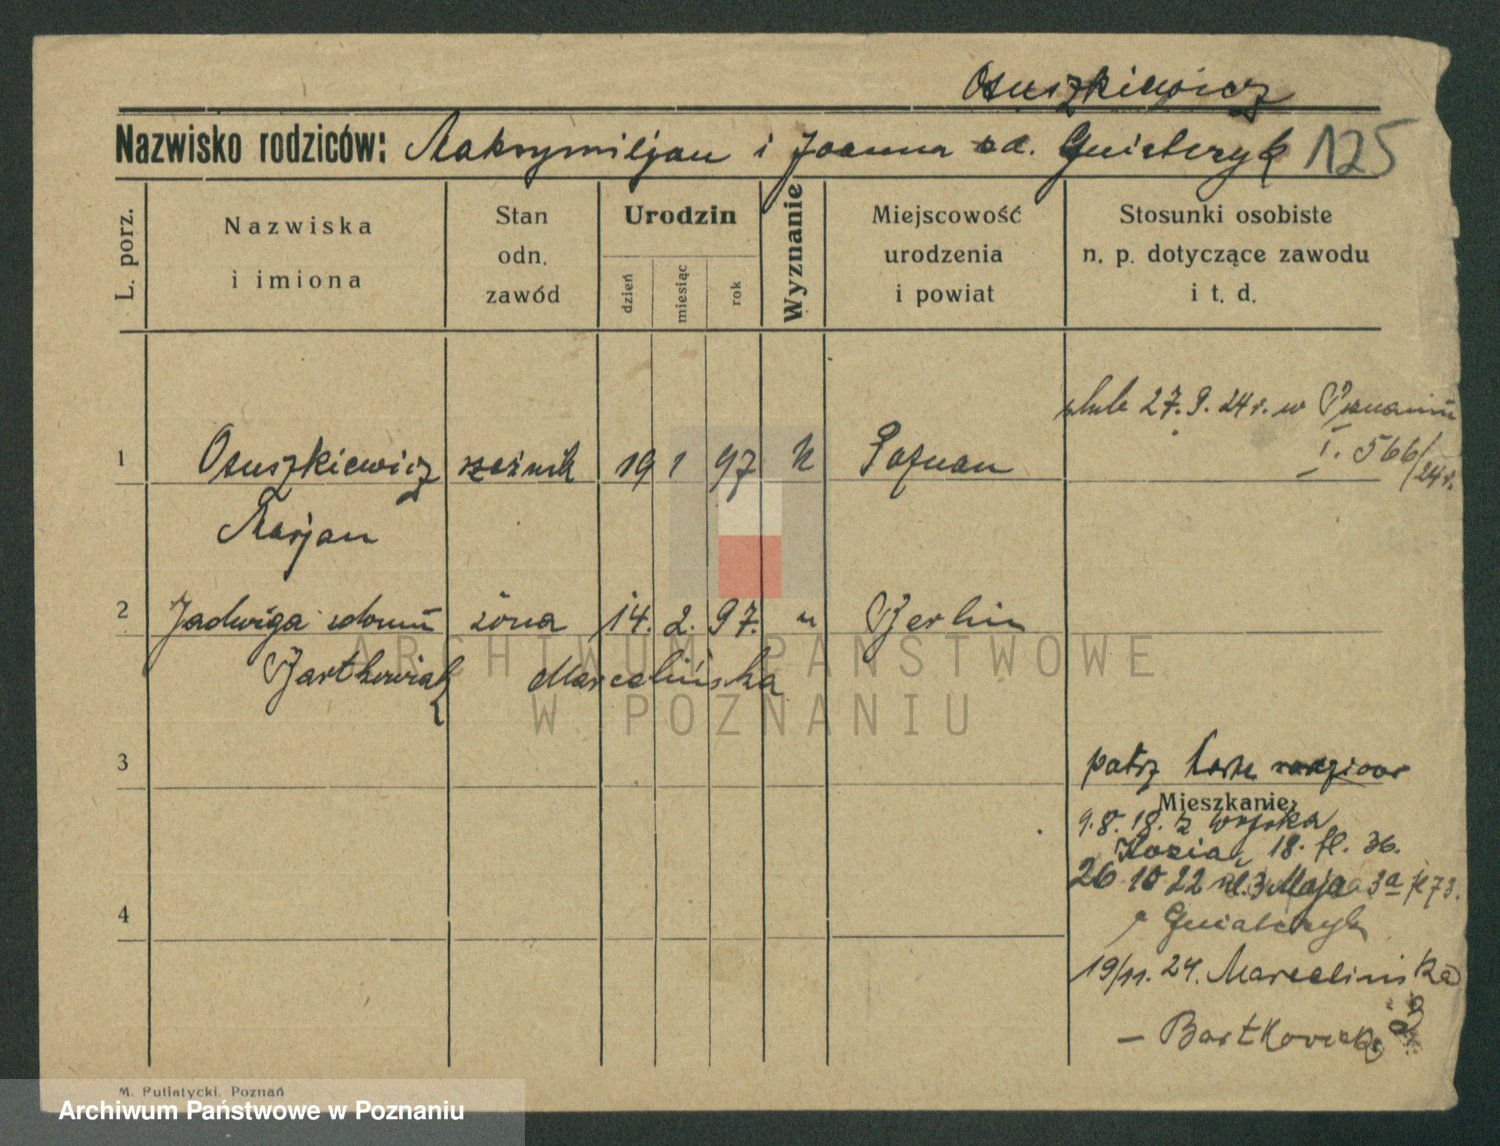 Osuszkiewicz
Nazwisko rodziców: Maksymiljan i Joanna zd. Gniatczyk 125
L. porz.
Nazwiska
i imiona
Stan
odn.
zawód
Urodzin
dzień
miesiąc
rok
Wyznanie
Miejscowość
urodzenia
i powiat
Stosunki osobiste
n. p. dotyczące zawodu
i t. d.
ślub 27.9.24 r. w Poznaniu
I. 566/24 r.
1 Osuszkiewicz rzeźnik 19 1 97 k Poznan
Marjan
2 Jadwiga zdomu żona 14. 2. 97. " Berlin
Bartkowiak Marcelińska
3
patrz
Mieszkanie:
9.8.18. z wojska
Kozia 18. fl. 36.
26 10 22 ul. 3 Maja 3a fl 73.
4
Gniatczyk
19/11. 24. Marcelińska
– Bartkowiak
M. Putiatycki, Poznań
ARCHIWUM PAŃSTWOWE
W POZNANIU
Archiwum Państwowe w Poznaniu